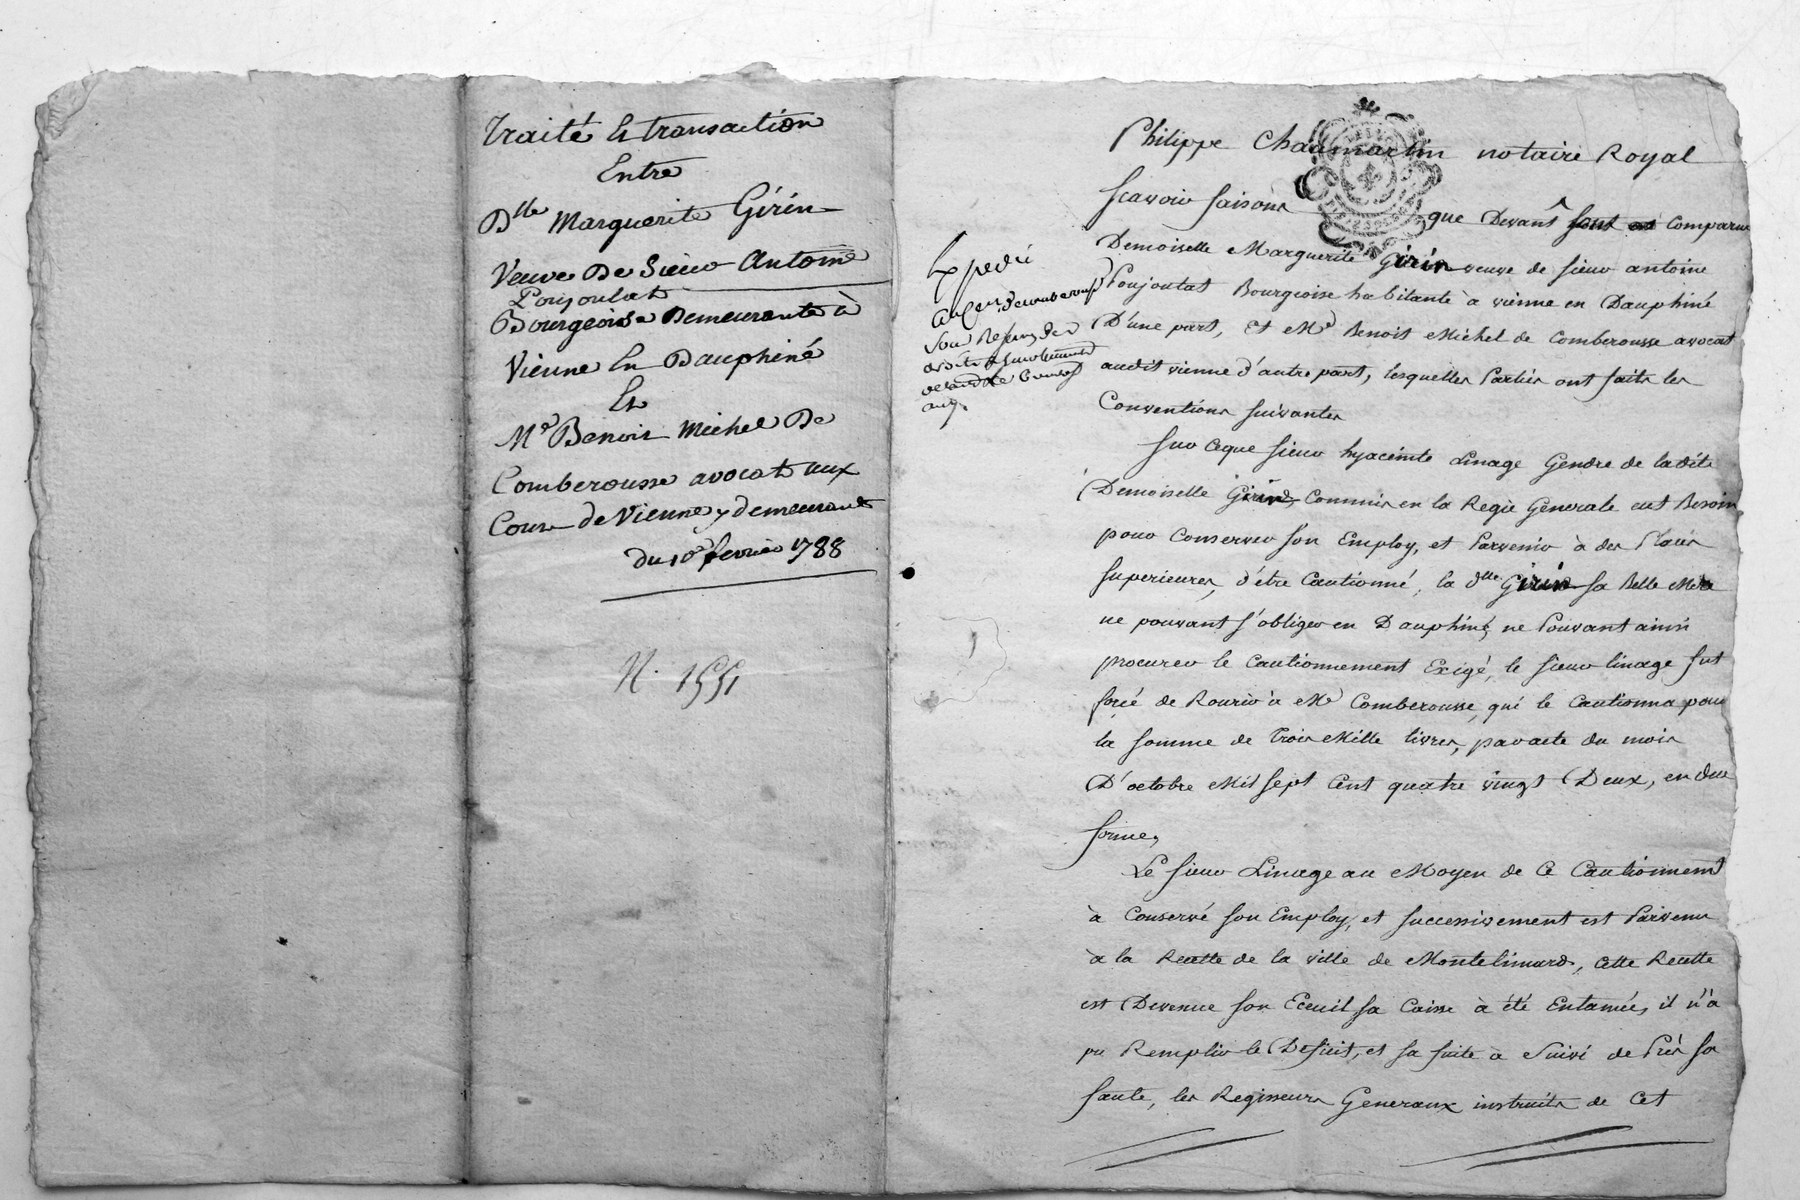 Traité et transaction
Entre
Dlle Marguerite Girin
Veuve De Sieur Antoine
Poujoulat
Bourgeoise Demeurante à
Vienne En Dauphiné
Et
Me Benoit Michel De
Comberousse avocat aux
Cours de Vienne y demeurant
du 10e fevrier 1788
N. 1551
Expedié
Son Reçu des
Philippe Chaumartin notaire Royal
scavoir faisons que Devant sont comparus
Demoiselle Marguerite Girin veuve de sieur antoine
Poujoulat Bourgeoise habitante à vienne en Dauphiné
D'une part, Et Me Benoit Michel de Comberousse avocat
audit vienne d'autre part, lesquelles Parties ont faits les
Conventions suivantes
sur ceque sieur hyacinte Linage Gendre de ladite
Demoiselle Girin, Commis en la Regie Generale eut Besoin
pour Conserver son Employ, et Parvenir à des Places
superieures, d'être Cautionné, la dlle Girin sa Belle Mere
ne pouvant s'obliger en Dauphiné, ne Pouvant ainsi
procurer le Cautionnement Exigé, le sieur linage fut
forcé de Rourir à Me Comberousse, qui le Cautionna pour
la somme de Trois Mille livres, par acte du mois
D'octobre Mil sept Cent quatre vingt Deux, en due
forme,
Le sieur Linage au Moyen de Ce Cautionnement
à Conservé son Employ, et successivement est Parvenu
à la Recette de la ville de Montelimard, Cette Recette
est Devenue son Eceuil sa Caisse à été Entamée, il n'a
pu Remplir le Deficit, et sa fuite à Suivi de Près sa
faute, les Regisseurs Generaux instruits de Cet